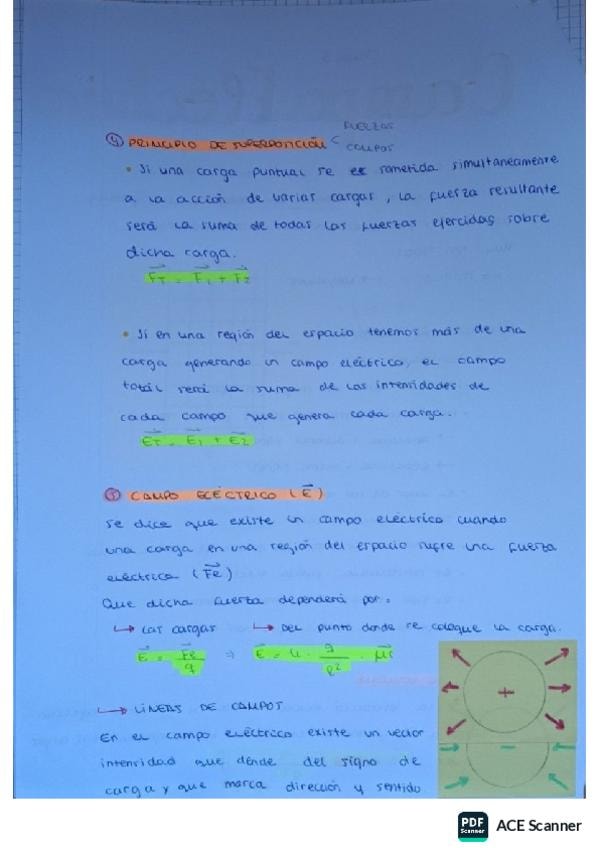 ④ PRINCIPIO DE SUPERPOSICIÓN < FUERZAS
CAMPOS
• Si una carga puntual se es sometida simultaneamente
a la acción de varias cargas, la fuerza resultante
será la suma de todas las fuerzas ejercidas sobre
dicha carga.
F⃗T = F⃗1 + F⃗2
• Si en una región del espacio tenemos más de una
carga generando un campo eléctrico, el campo
total será la suma de las intensidades de
cada campo que genera cada carga.
E⃗T = E⃗1 + E⃗2
⑤ CAMPO ELÉCTRICO (E⃗)
Se dice que existe un campo eléctrico cuando
una carga en una región del espacio sufre una fuerza
eléctrica (F⃗e)
Que dicha fuerza dependerá por:
↳ Las cargas ↳ Del punto donde se coloque la carga.
E⃗ = F⃗e/q ⇒ E⃗ = K · q/r² · μ⃗r
↳ LÍNEAS DE CAMPOS
+
En el campo eléctrico existe un vector
−
intensidad que dende del signo de
carga y que marca dirección y sentido
PDF Scanner ACE Scanner